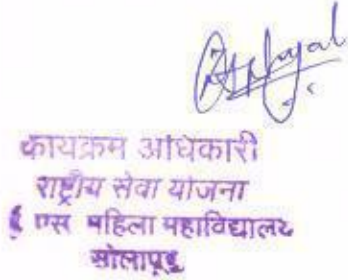 कायक्रम अधिकारी
राष्ट्रीय सेवा योजना
एस महिला महाविद्यालय
सोलापूर